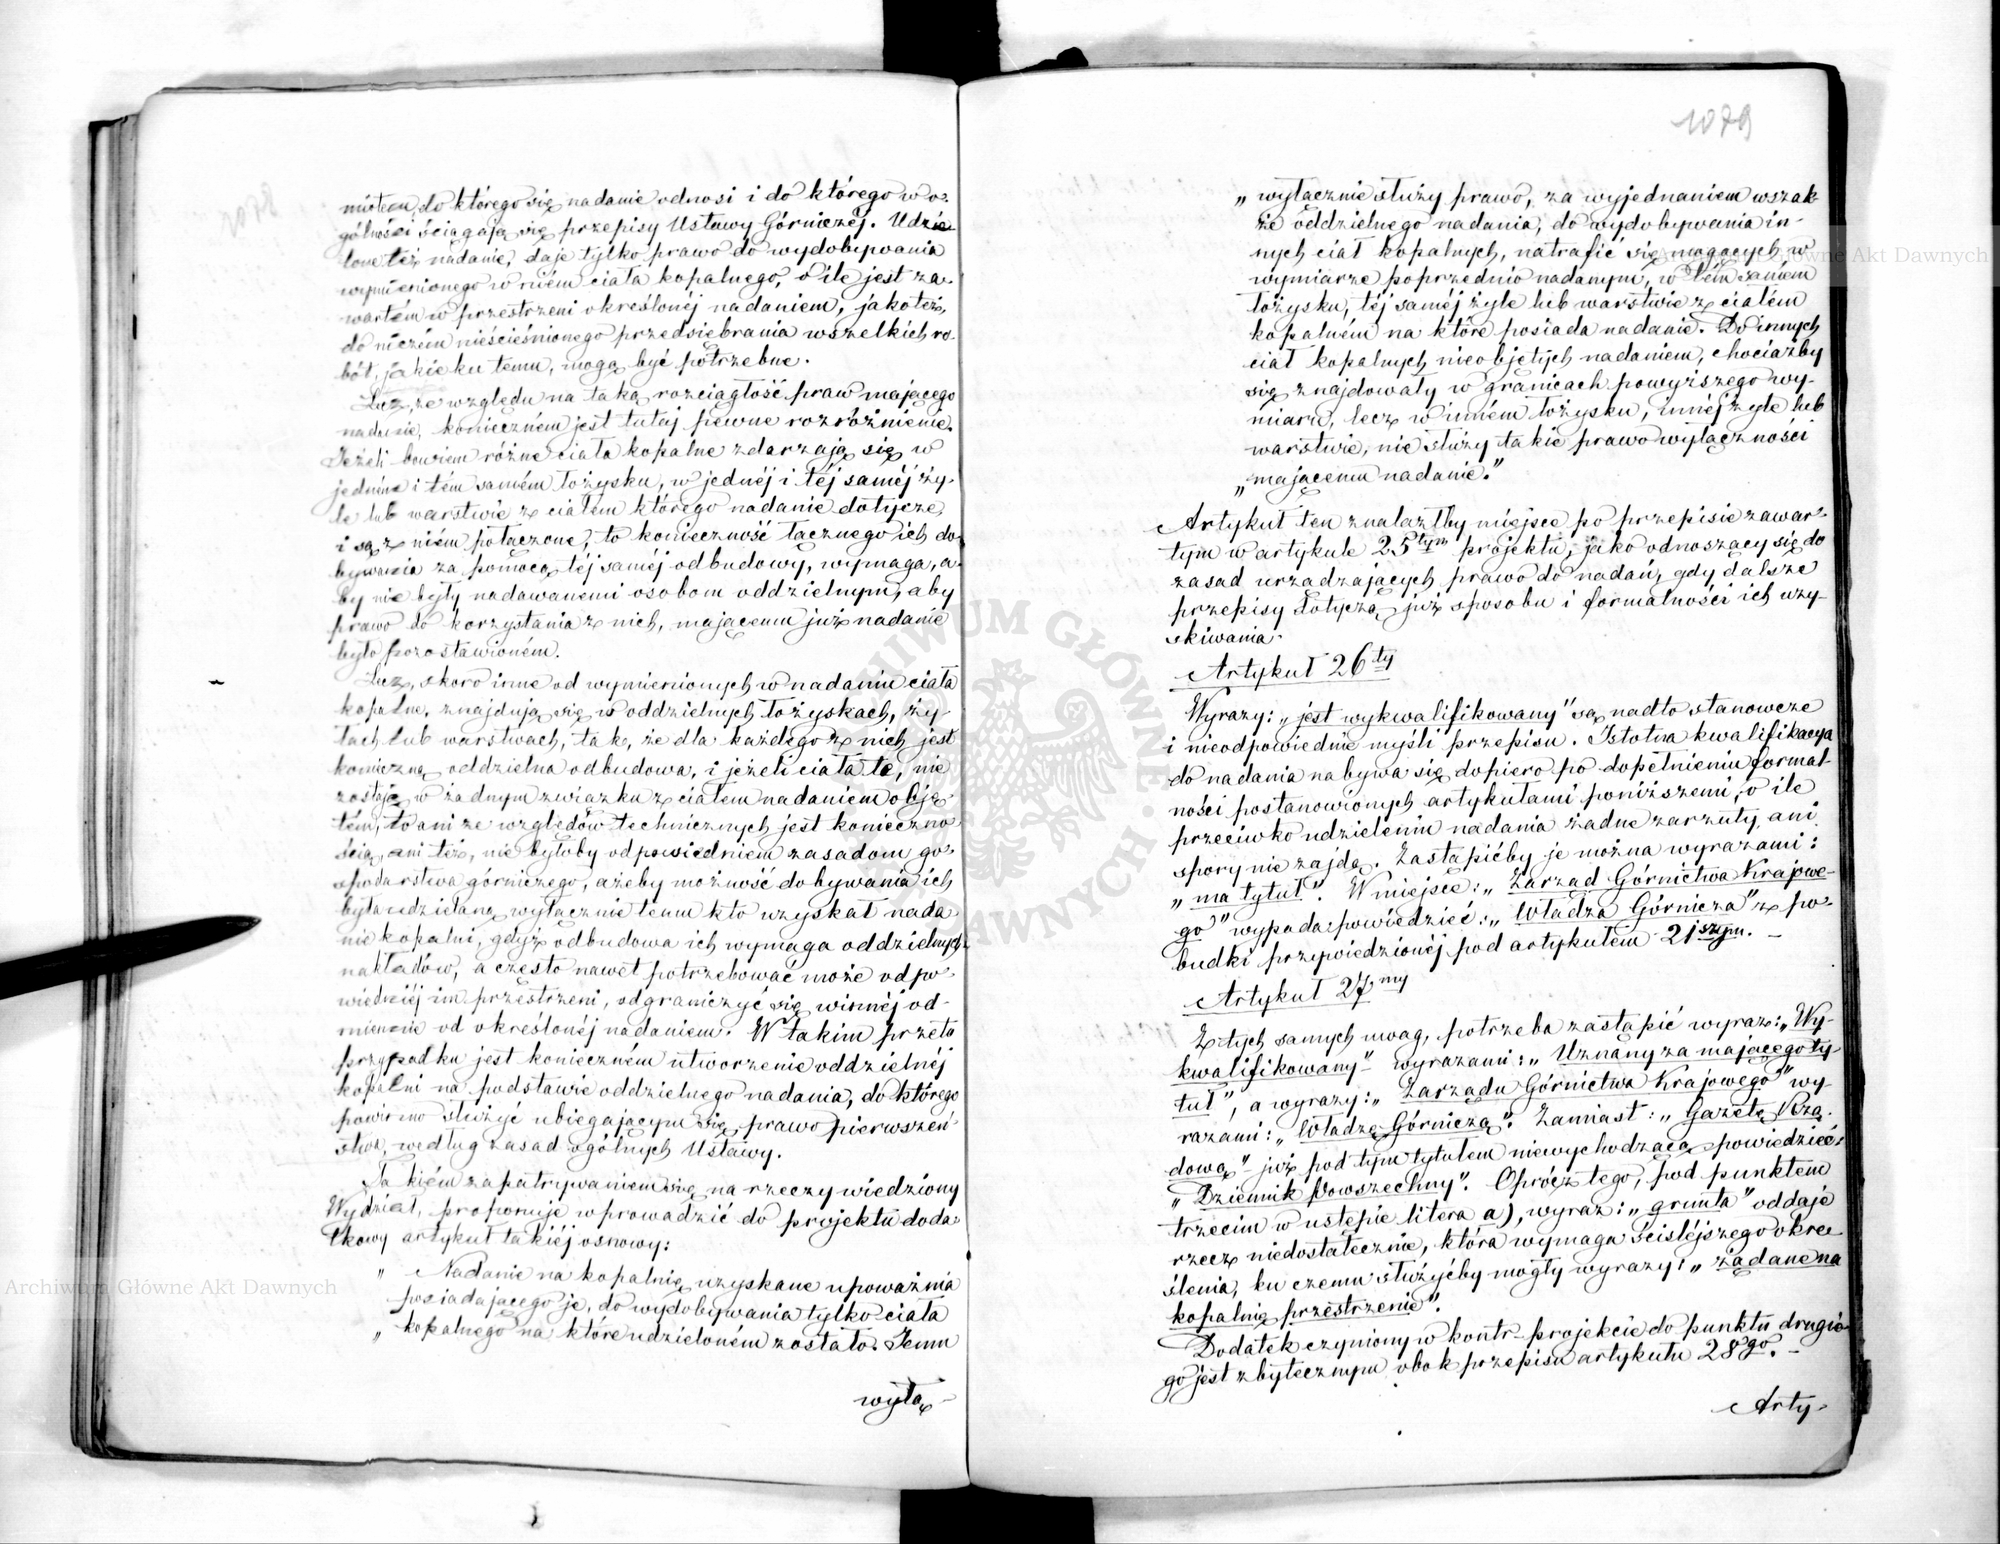 miotem, do którego się nadanie odnosi i do którego w o-
gólności ściągają się przepisy Ustawy Górniczéj. Udzie-
lone téż nadanie, daje tylko prawo do wydobywania
wymienionego w niém ciała kopalnego, o ile jest za-
wartém w przestrzeni określonéj nadaniem, jako też,
do niczém nieścieśnionego przedsiebrania wszelkich ro-
bót, jakie ku temu, mogą być potrzebne.
Lecz, ze względu na taką rozciągłość praw mającego
nadanie, konieczném jest tutaj pewne rozróżnienie.
Jeżeli bowiem różne ciała kopalne zdarzają się w
jedném i tém samém łożysku, w jednéj i téj saméj ży-
le lub warstwie z ciałem którego nadanie dotycze,
i są z niém połączone, to konieczność łącznego ich do-
bywania za pomocą téj saméj odbudowy, wymaga, a-
by nie były nadawanemi osobom oddzielnym, aby
prawo do korzystania z nich, mającemu już nadanie
było pozostawioném.
Lecz, skoro inne od wymienionych w nadaniu ciała
kopalne, znajdują się w oddzielnych łożyskach, ży-
łach lub warstwach, tak, że dla każdego z nich jest
konieczną oddzielna odbudowa, i jeżeli ciała te, nie
zostają w żadnym związku z ciałem nadaniem obję-
tém, to ani ze względów technicznych jest koniecznо-
ścią, ani też, nie byłoby odpowiedniem zasadom go-
spodarstwa górniczego, ażeby możność dobywania ich
była udzielaną wyłącznie temu kto uzyskał nada-
nie kopalni, gdyż odbudowa ich wymaga oddzielnych
nakładów, a często nawet potrzebować może odpo-
wiedniéj im przestrzeni, odgraniczyć się winnéj od-
miennie od określonéj nadaniem. W takim przeto
przypadku jest konieczném utworzenie oddzielnéj
kopalni na podstawie oddzielnego nadania, do którego
powinno służyć ubiegającym się, prawo pierwszeń-
stwa, według zasad ogólnych Ustawy.
Takiém zapatrywaniem się na rzeczy wiedziony
Wydział, proponuje wprowadzić do projektu doda-
tkowy artykuł takiéj osnowy:
„ Nadanie na kopalnię uzyskane upoważnia
posiadającego je, do wydobywania tylko ciała
„ kopalnego na które udzieloném zostało. Jemu
wyłą-
1079
„ wyłącznie służy prawo, za wyjednaniem wszak-
że oddzielnego nadania, do wydobywania in-
nych ciał kopalnych, natrafić się mogących w
wymiarze poprzednio nadanym, w tém samém
łożysku, téj saméj żyle lub warstwie z ciałem
kopalném na które posiada nadanie. Do innych
ciał kopalnych nieobjętych nadaniem, chociażby
się znajdowały w granicach powyższego wy-
miaru, lecz w inném łożysku, innéj żyle lub
warstwie, nie służy takie prawo wyłączności
„ mającemu nadanie."
Artykuł ten znalazłby miejsce po przepisie zawar-
tym w artykule 25tym projektu, jako odnoszący się do
zasad urządzających prawo do nadań, gdy dalsze
przepisy dotyczą już sposobu i formalności ich uzy-
skiwania.
Artykuł 26ty
Wyrazy: „jest wykwalifikowany" są nadto stanowcze
i nieodpowiednie myśli przepisu. Istotna kwalifikacya
do nadania nabywa się dopiero po dopełnieniu formal-
ności postanowionych artykułami poniższemi, o ile
przeciwko udzieleniu nadania żadne zarzuty, ani
spory nie zajdą. Zastąpićby je można wyrazami:
„ma tytuł". W miejsce: „Zarząd Górnictwa Krajowe-
go" wypada powiedzieć: „Władza Górnicza" z po-
budki przywiedzionéj pod artykułem 21szym. –
Artykuł 27my
Z tych samych uwag, potrzeba zastąpić wyraz: „Wy-
kwalifikowany" wyrazami: „Uznany za mającego ty-
tuł", a wyrazy: „Zarządu Górnictwa Krajowego" wy-
razami: „Władzę Górniczą". Zamiast: „Gazetę Rzą-
dową" już pod tym tytułem niewychodzącą powiedzieć:
„Dziennik Powszechny". Oprócz tego, pod punktem
trzecim w ustępie litera a), wyraz: „grunta" oddaje
rzecz niedostatecznie, która wymaga ściślejszego okre-
ślenia, ku czemu służyćby mogły wyrazy: „żądane na
kopalnię przestrzenie".
Dodatek czyniony w kontr-projekcie do punktu drugie-
go jest zbytecznym obok przepisu artykułu 28go. –
Arty-
ARCHIWUM GŁÓWNE AKT DAWNYCH
Archiwum Główne Akt Dawnych
Archiwum Główne Akt Dawnych